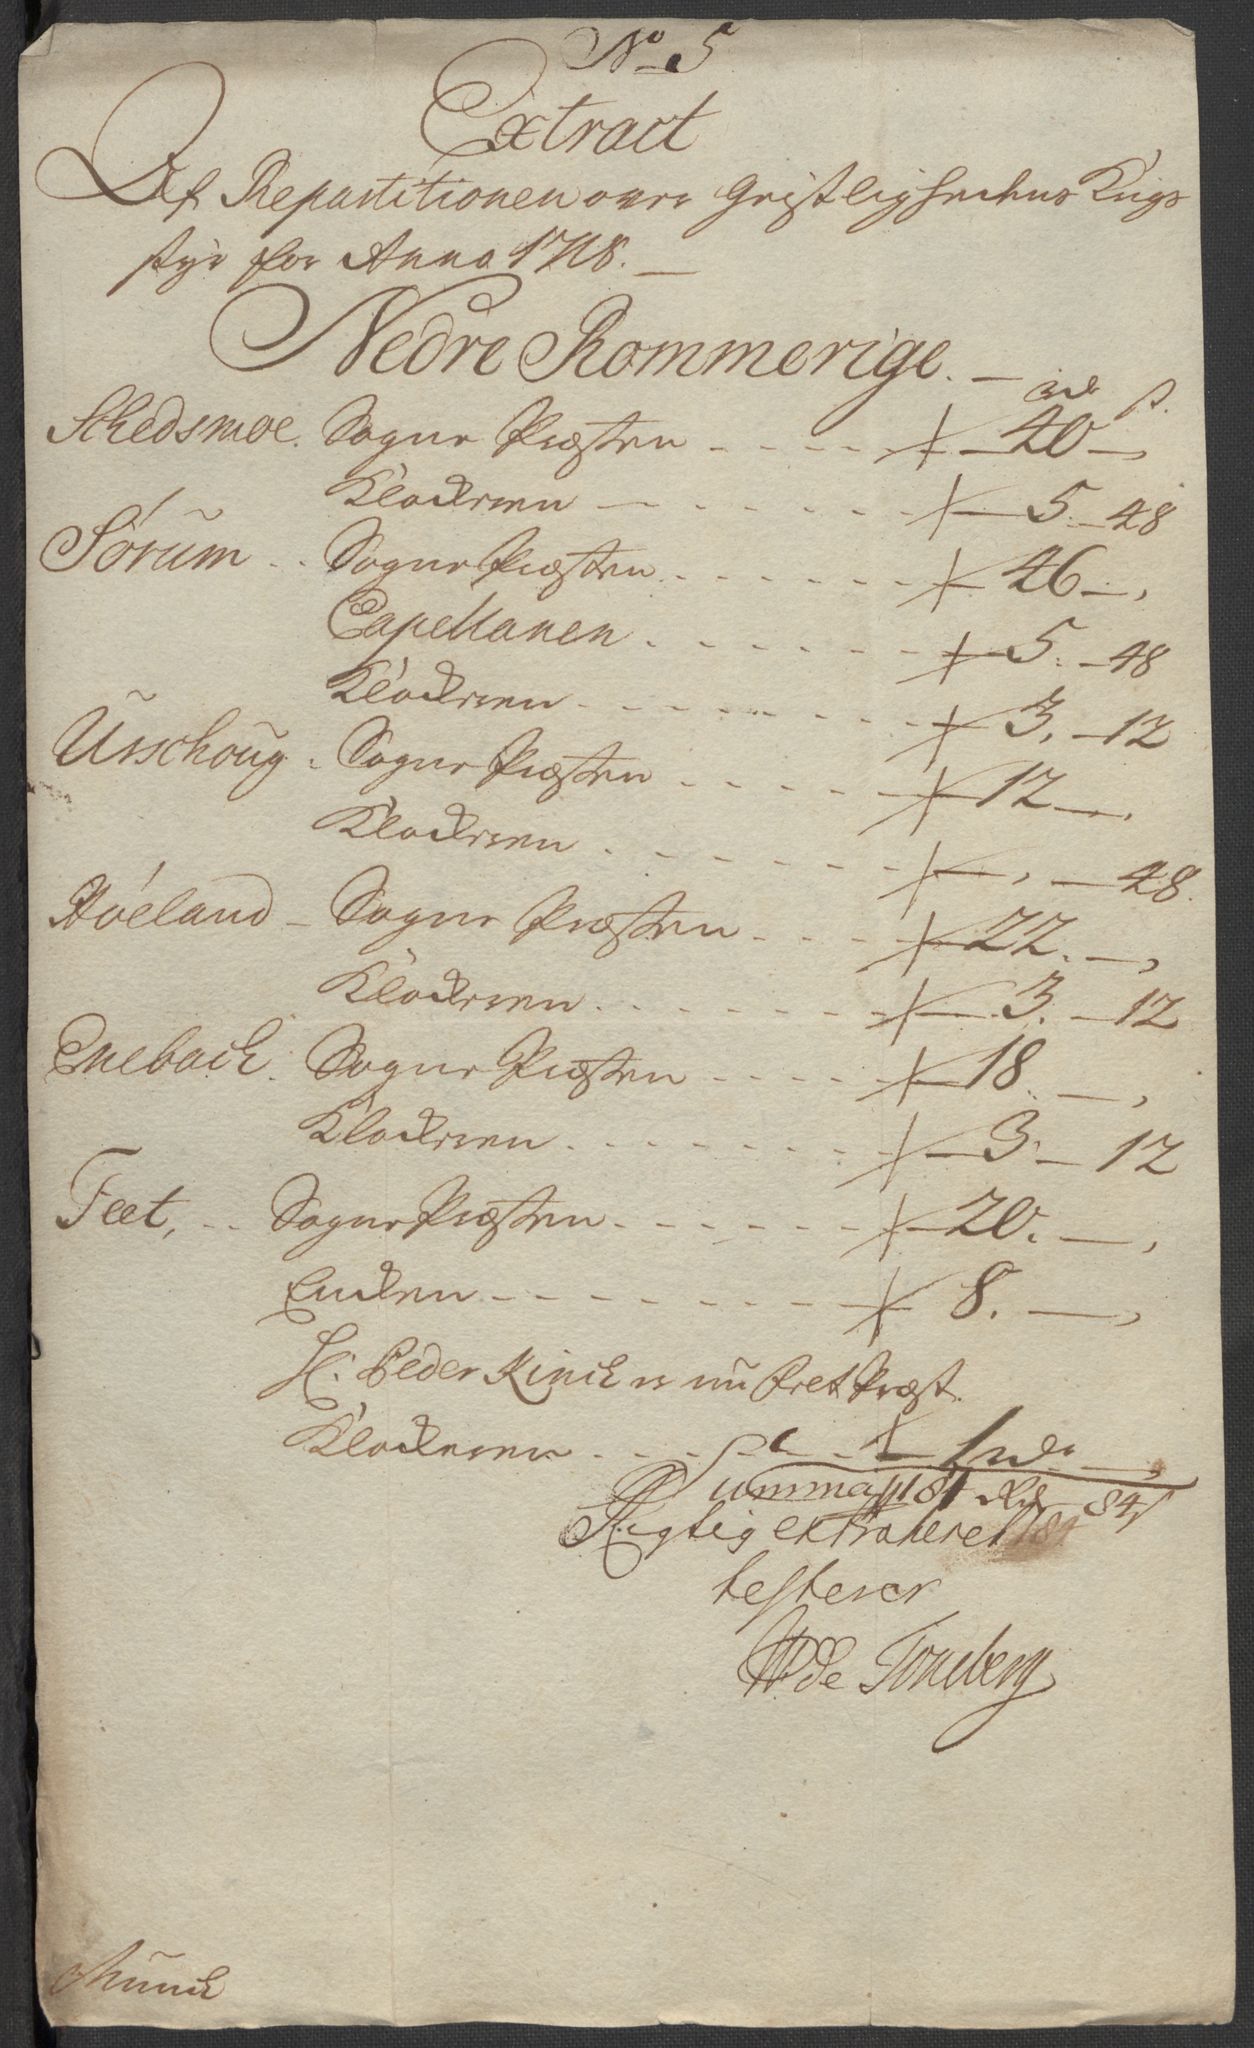 No 5
Extract
Af Repartitionen over Geistlighedens Krigs
styr for Anno 1718.
Nedre Rommerige.
rdr ß.
Schedsmoe. Sogne Præsten - - - - 40 -,
Klockeren - - - - - 5. - 48
Sørum - - Sogne Præsten - - - - - 46 -,
Capellanen - - - - - 5. - 48
Klockeren - - - - - 3. - 12
Urschoug. Sogne Præsten - - - - 12 -,
Klockeren - - - - - , - 48.
Høeland - Sogne Præsten - - - - 22. -,
Klockeren - - - - - 3. - 12
Eneback. Sogne Præsten - - - - 18. -,
Klockeren - - - - - 3 - 12
Feet, - - Sogne Præsten - - - - 20. -,
Encken - - - - - 8. -,
H. Peder Kinck er nu Feet Præst
Klockeren - - - - 1 rdr -,
Summa 187 Rdr 84 ß
Rigtig extraheret
testerer
WdeTonsberg
Munck